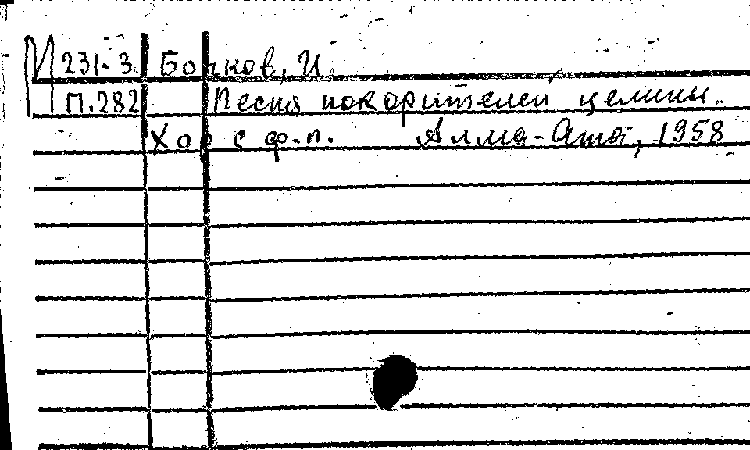 М 231-3 Бочков, И
П.282 Песня покорителей целины.
Хор с ф.п. Алма-Ата, 1958